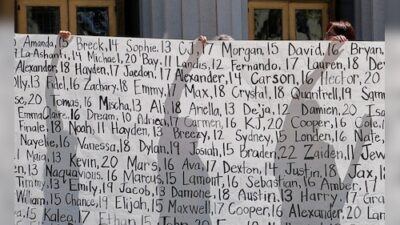 Amanda, 16 Breck, 14 Sophie, 13 CJ, 17 Morgan, 15 David, 16 Bryan,
La-Ashanti, 14 Michael, 20 Bay, 11 Landis, 12 Fernando, 17 Lauren, 18
Alexander, 18 Hayden, 17 Jaedon, 17 Alexander, 14 Carson, 16 Hector, 20
13 16 Zachary, 18 Emmy, 17 Max, 18 Crystal, 18 Quantrell, 19
20 Tomas, 16 Mischa, 13 Ali, 18 Arella, 13 Deja, 13 Damien, 20
Emma Claire, 16 Dream, 10 14 Carmen, 16 KJ, 20 Cooper, 16 Cole,
Finale, 18 Noah, 11 Hayden, 13 Breezy, 12 Sydney, 15 London, 16 Nate,
Nayelie, 16 Vanessa, 18 Dylan, 19 Josiah, 15 Braden, 22 Zaiden, 11
Maia, 13 Kevin, 20 Mars, 16 Ava, 17 Dexton, 14 Justin, 18 Jax,
11 Naquavious, 15 Marcus, 15 Lamont, 16 Sebastian, 16 Amber, 17
Timmy, 13 Emily, 19 Jacob, 13 Damone, 18 Austin, 13 Harry, 17
William, 15 Chance, 19 Elijah, 15 Maxwell, 17 Cooper, 16 Alexander, 20
15 Kalea, 17 Ethan, 15 John, 20